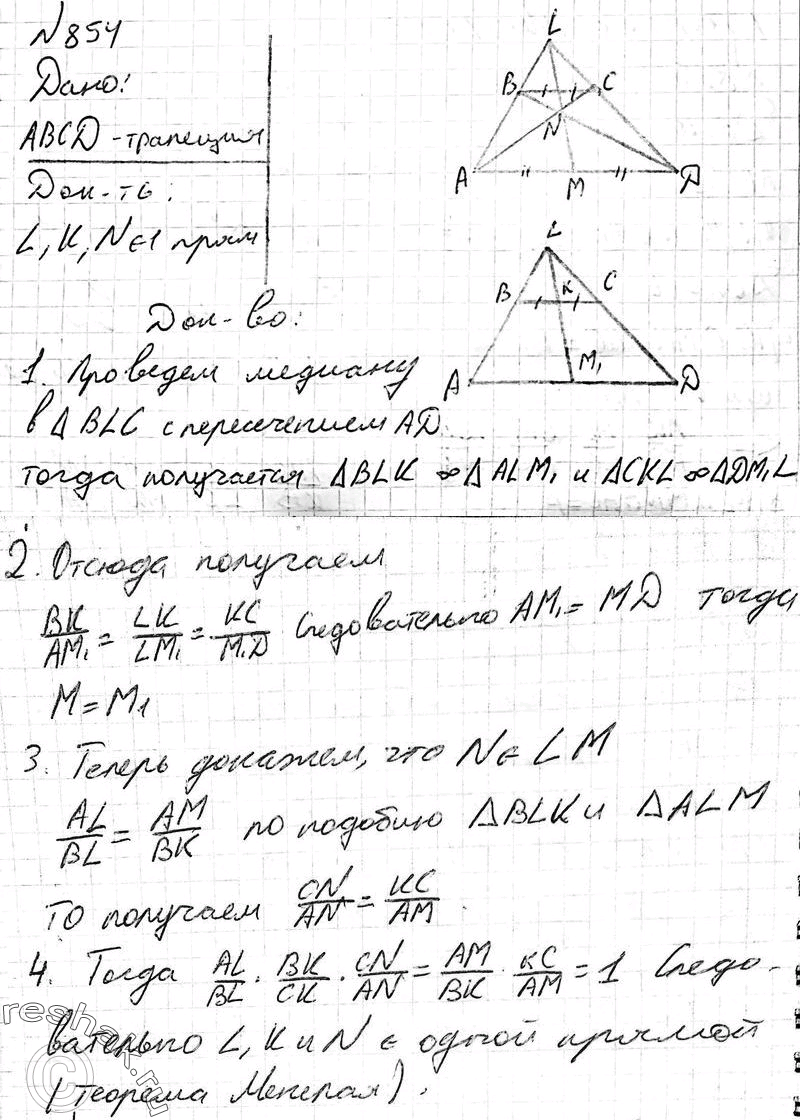 N854
Дано:
ABCD - трапеция
Док-ть:
L, K, N ∈ 1 прям
L
B C
N
A M D
L
B K C
A M₁ D
Док-во:
1. Проведем медиану
в ΔBLC с пересечением AD
тогда получается ΔBLK ∞ ΔALM₁ и ΔCKL ∞ ΔDM₁L
2. Отсюда получаем
BK/AM₁ = LK/LM₁ = KC/M₁D Следовательно AM₁ = MD тогда
M = M₁
3. Теперь докажем, что N ∈ LM
AL/BL = AM/BK по подобию ΔBLK и ΔALM
То получаем CN/AN = KC/AM
4. Тогда AL/BL · BK/CK · CN/AN = AM/BK · KC/AM = 1 Следо-
вательно L, K и N ∈ одной прямой
(теорема Менелая).
reshak.ru
©